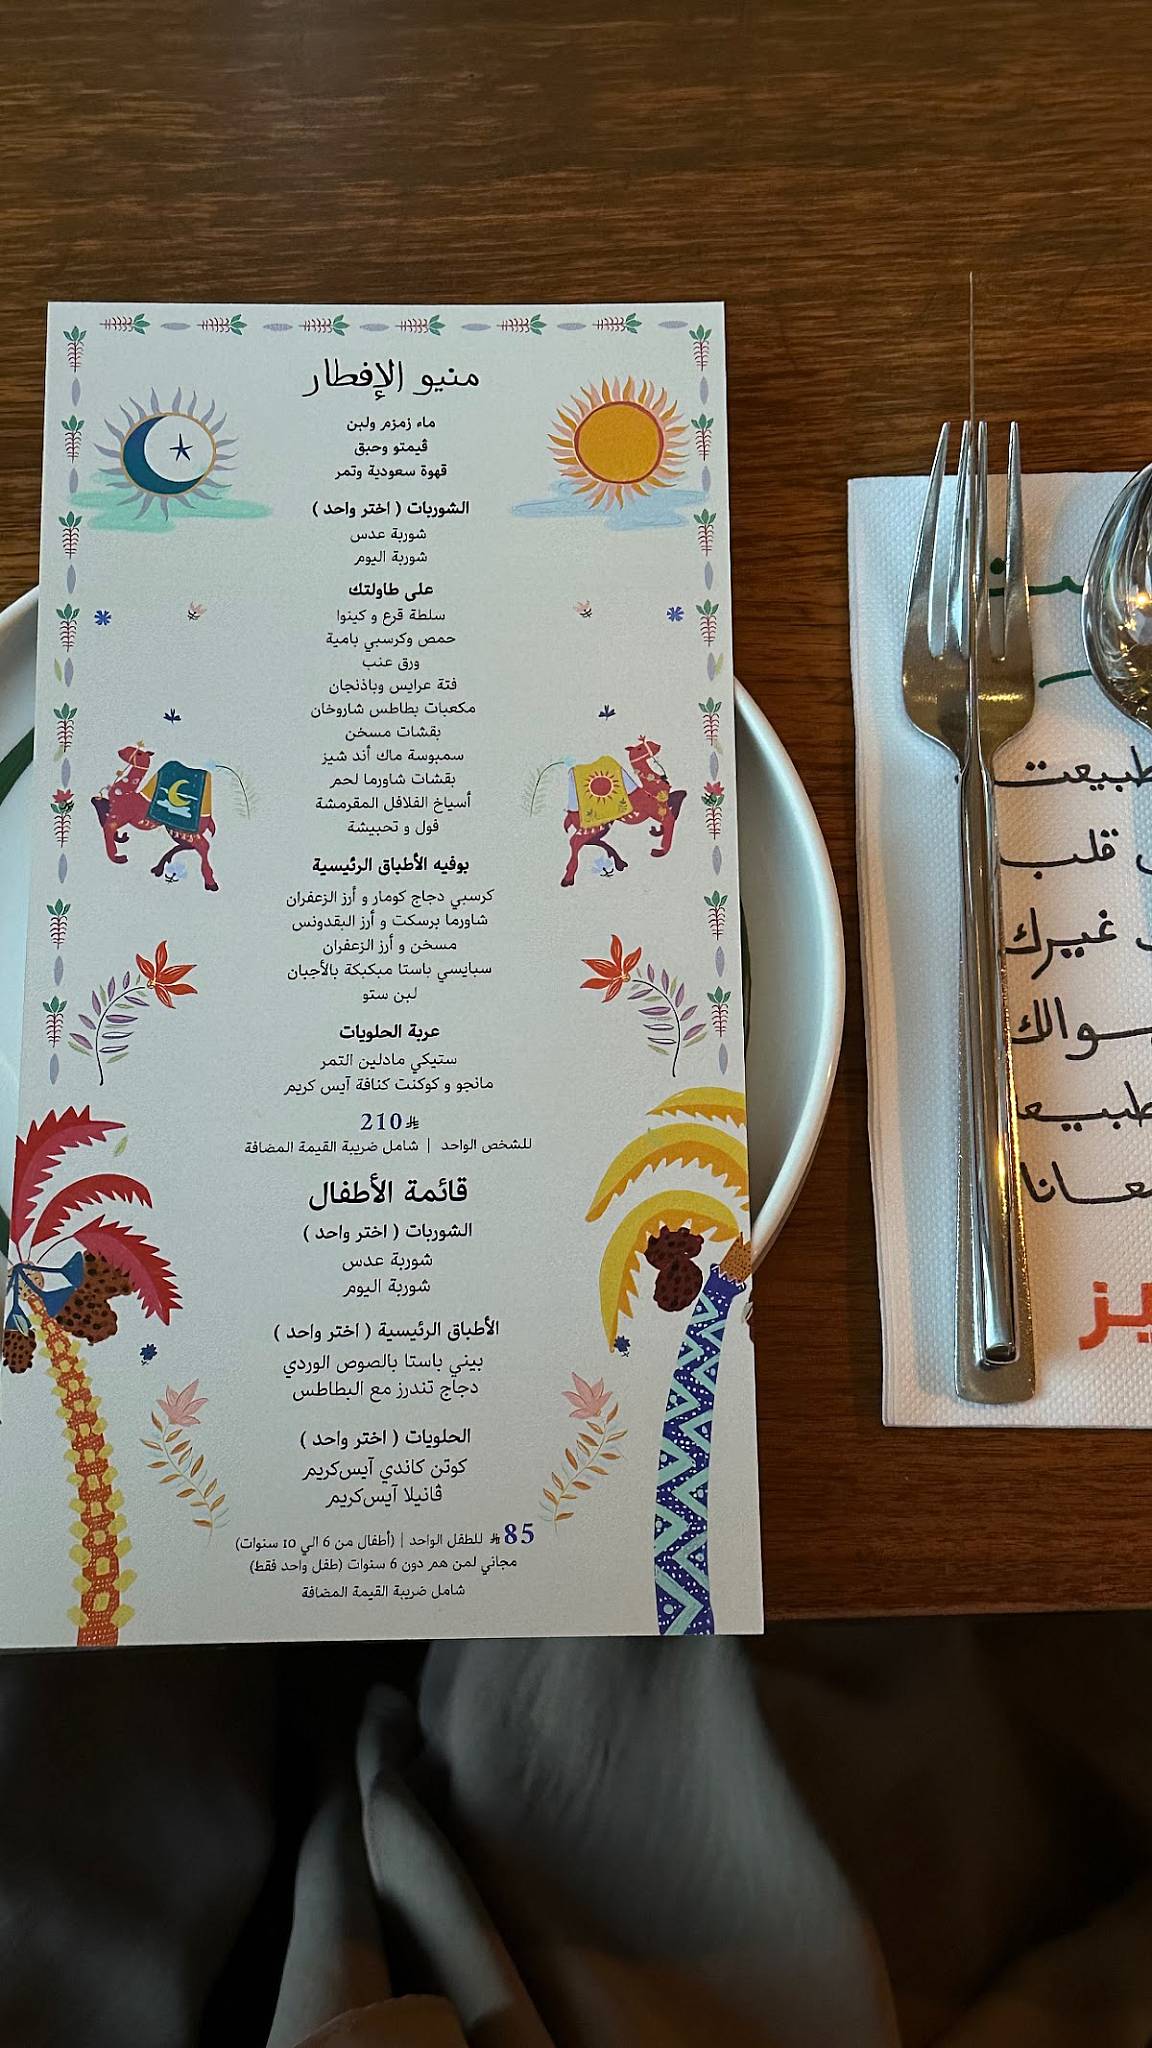 منيو الإفطار
ماء زمزم ولبن
ڤيمتو وحبق
قهوة سعودية وتمر
الشوربات ( اختر واحد )
شوربة عدس
شوربة اليوم
على طاولتك
سلطة قرع و كينوا
حمص وكرسبي بامية
ورق عنب
فتة عرايس وباذنجان
مكعبات بطاطس شاروخان
بقشات مسخن
سمبوسة ماك أند شيز
بقشات شاورما لحم
أسياخ الفلافل المقرمشة
فول و تحبيشة
بوفيه الأطباق الرئيسية
كرسبي دجاج كومار و أرز الزعفران
شاورما برسكت و أرز البقدونس
مسخن و أرز الزعفران
سبايسي باستا مبكبكة بالأجبان
لبن ستو
عربة الحلويات
ستيكي مادلين التمر
مانجو و كوكنت كنافة آيس كريم
210
للشخص الواحد | شامل ضريبة القيمة المضافة
قائمة الأطفال
الشوربات ( اختر واحد )
شوربة عدس
شوربة اليوم
الأطباق الرئيسية ( اختر واحد )
بيني باستا بالصوص الوردي
دجاج تندرز مع البطاطس
الحلويات ( اختر واحد )
كوتن كاندي آيس‌كريم
ڤانيلا آيس‌كريم
85 للطفل الواحد | (أطفال من 6 الي 10 سنوات)
مجاني لمن هم دون 6 سنوات (طفل واحد فقط)
شامل ضريبة القيمة المضافة
قلب
غيرك